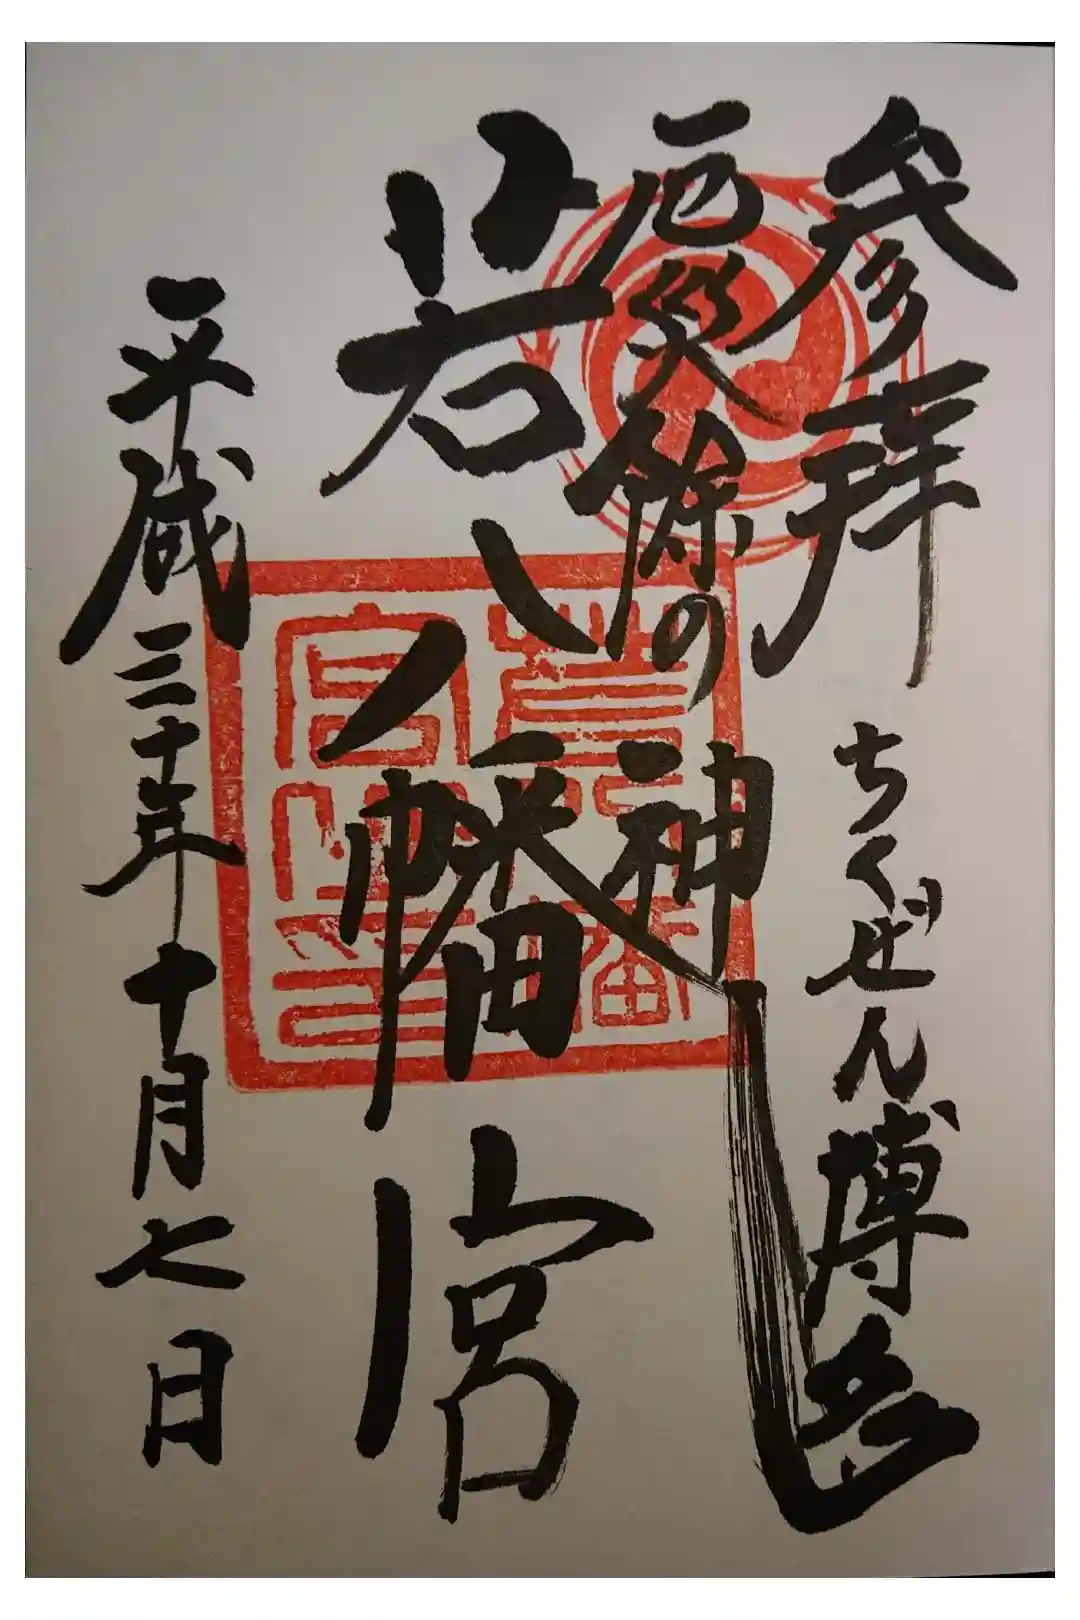 参拝 ちくぜん博多
厄災除の神
若八幡宮
平成三十年十月七日